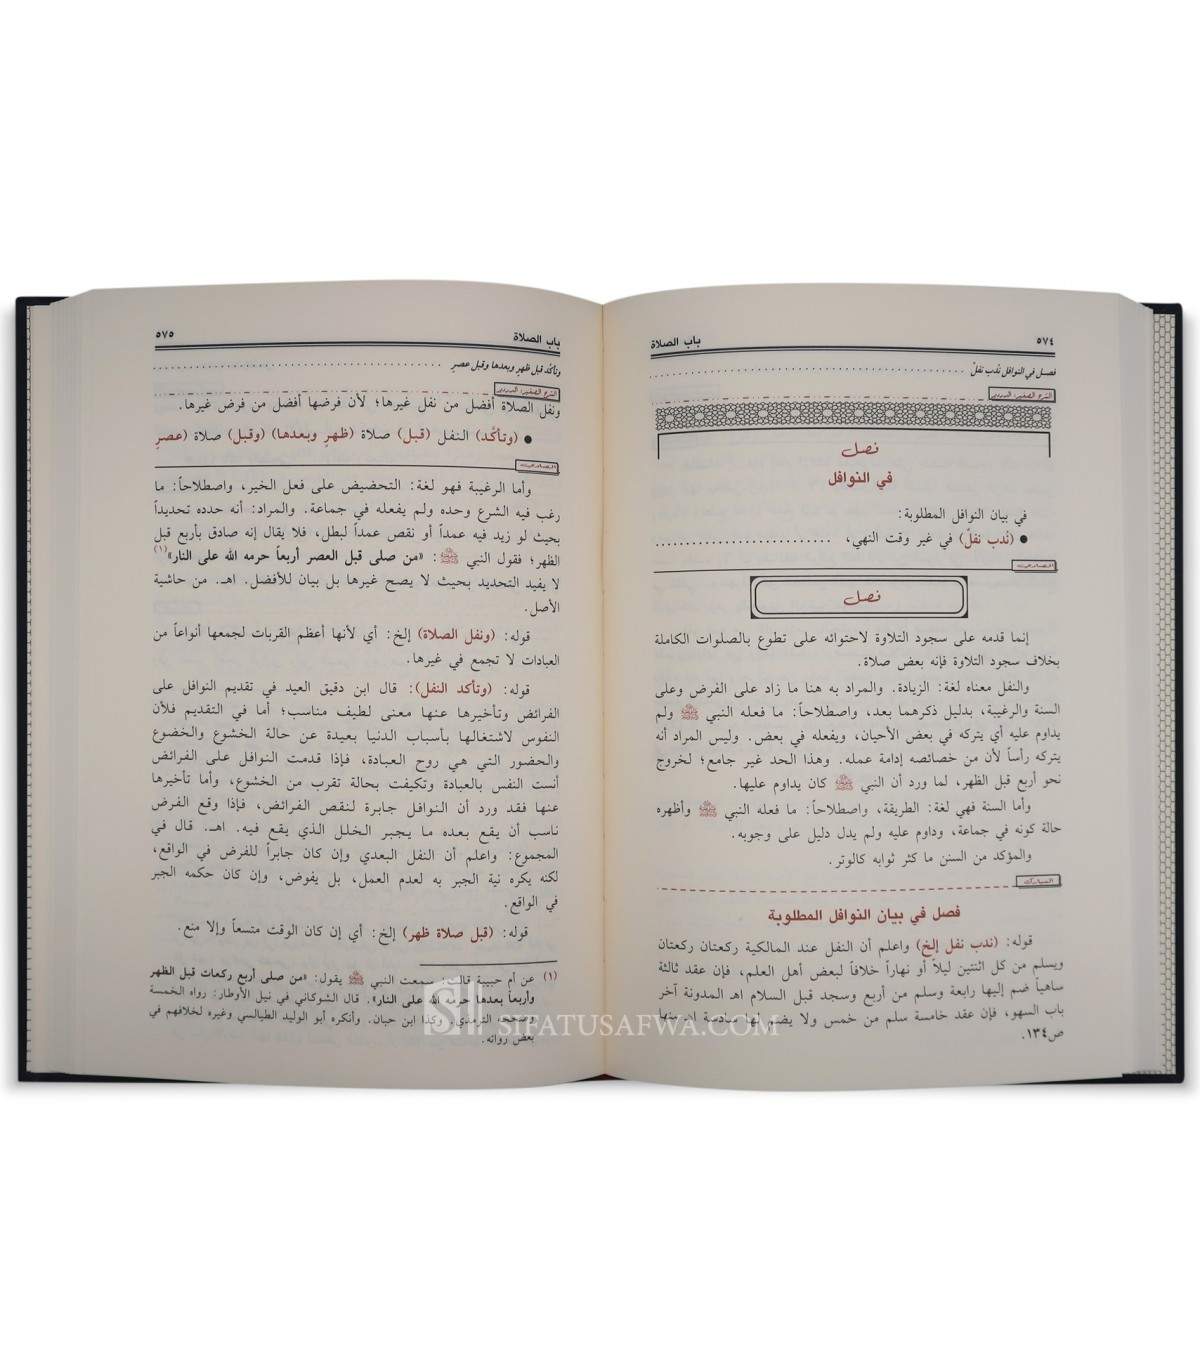 باب الصلاة ٥٧٤
فصل في النوافل نُدب نفلٌ
الشرح الصغير: الدردير
فصل
في النوافل
في بيان النوافل المطلوبة:
● (نُدب نفلٌ) في غير وقت النهي،
الصاوي
فصل
إنما قدمه على سجود التلاوة لاحتوائه على تطوع بالصلوات الكاملة
بخلاف سجود التلاوة فإنه بعض صلاة.
والنفل معناه لغة: الزيادة. والمراد به هنا ما زاد على الفرض وعلى
السنة والرغيبة، بدليل ذكرهما بعد، واصطلاحاً: ما فعله النبي ﷺ ولم
يداوم عليه أي يتركه في بعض الأحيان، ويفعله في بعض. وليس المراد أنه
يتركه رأساً لأن من خصائصه إدامة عمله. وهذا الحد غير جامع؛ لخروج
نحو أربع قبل الظهر، لما ورد أن النبي ﷺ كان يداوم عليها.
وأما السنة فهي لغة: الطريقة، واصطلاحاً: ما فعله النبي ﷺ وأظهره
حالة كونه في جماعة، وداوم عليه ولم يدل دليل على وجوبه.
والمؤكد من السنن ما كثر ثوابه كالوتر.
المبارك
فصل في بيان النوافل المطلوبة
قوله: (ندب نفل إلخ) واعلم أن النفل عند المالكية ركعتان ركعتان
ويسلم من كل اثنتين ليلاً أو نهاراً خلافاً لبعض أهل العلم، فإن عقد ثالثة
ساهياً ضم إليها رابعة وسلم من أربع وسجد قبل السلام اهـ المدونة آخر
باب السهو، فإن عقد خامسة سلم من خمس ولا يضم لها سادسة اهـ منها
ص١٣٤.
باب الصلاة ٥٧٥
وتأكّد قبل ظهرٍ وبعدها وقبل عصرٍ
الشرح الصغير: الدردير
ونفل الصلاة أفضل من نفل غيرها؛ لأن فرضها أفضل من فرض غيرها.
● (وتأكّد) النفل (قبل) صلاة (ظهرٍ وبعدها) (وقبل) صلاة (عصرٍ
الصاوي
وأما الرغيبة فهو لغة: التحضيض على فعل الخير، واصطلاحاً: ما
رغب فيه الشرع وحده ولم يفعله في جماعة. والمراد: أنه حدده تحديداً
بحيث لو زيد فيه عمداً أو نقص عمداً لبطل، فلا يقال إنه صادق بأربع قبل
الظهر؛ فقول النبي ﷺ: «من صلى قبل العصر أربعاً حرمه الله على النار»(١)
لا يفيد التحديد بحيث لا يصح غيرها بل بيان للأفضل. اهـ. من حاشية
الأصل.
قوله: (ونفل الصلاة) إلخ: أي لأنها أعظم القربات لجمعها أنواعاً من
العبادات لا تجمع في غيرها.
قوله: (وتأكد النفل): قال ابن دقيق العيد في تقديم النوافل على
الفرائض وتأخيرها عنها معنى لطيف مناسب؛ أما في التقديم فلأن
النفوس لاشتغالها بأسباب الدنيا بعيدة عن حالة الخشوع والخضوع
والحضور التي هي روح العبادة، فإذا قدمت النوافل على الفرائض
أنست النفس بالعبادة وتكيفت بحالة تقرب من الخشوع، وأما تأخيرها
عنها فقد ورد أن النوافل جابرة لنقص الفرائض، فإذا وقع الفرض
ناسب أن يقع بعده ما يجبر الخلل الذي يقع فيه. اهـ. قال في
المجموع: واعلم أن النفل البعدي وإن كان جابراً للفرض في الواقع،
لكنه يكره نية الجبر به لعدم العمل، بل يفوض، وإن كان حكمه الجبر
في الواقع.
قوله: (قبل صلاة ظهر) إلخ: أي إن كان الوقت متسعاً وإلا منع.
(١) عن أم حبيبة قالت: سمعت النبي ﷺ يقول: «من صلى أربع ركعات قبل الظهر
وأربعاً بعدها حرمه الله على النار». قال الشوكاني في نيل الأوطار: رواه الخمسة
وصححه الترمذي. وكذا ابن حبان. وأنكره أبو الوليد الطيالسي وغيره لخلافهم في
بعض رواته.
SIFATUSAFWA.COM